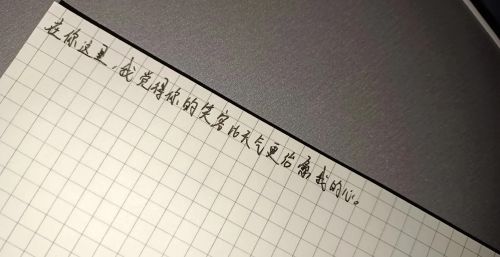 在你这里,我觉得你的笑容比天气更治愈我的心。